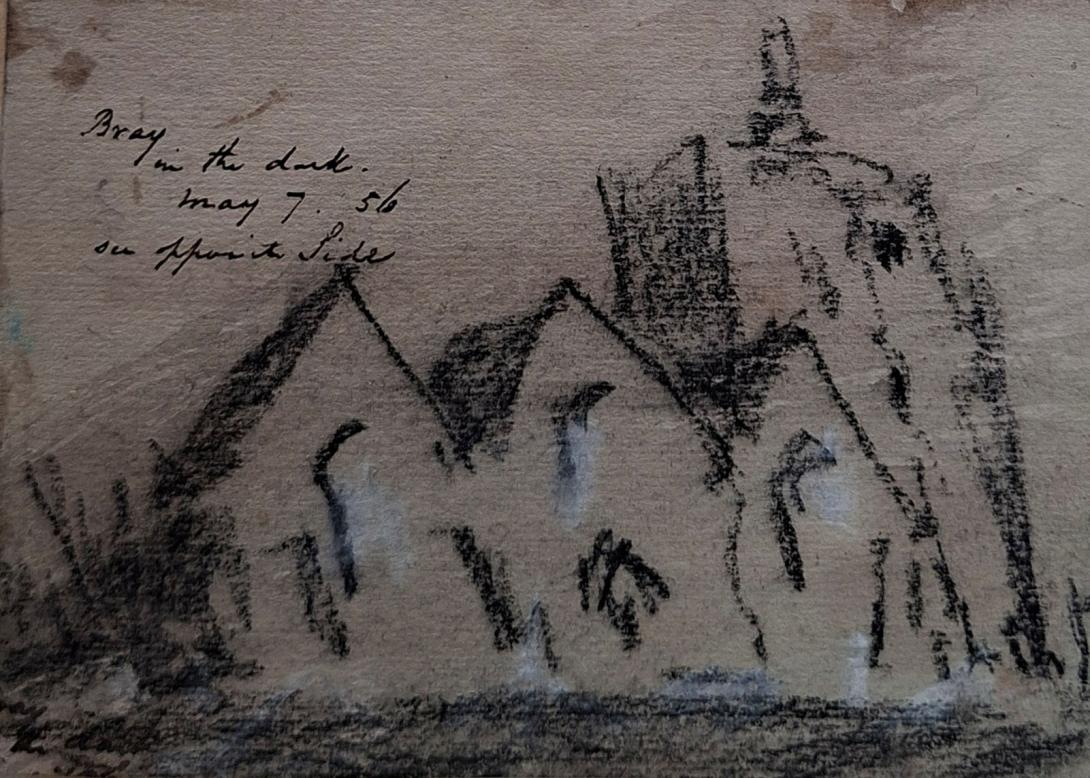 Bray
in the dark.
May 7. 56
see opposite Side